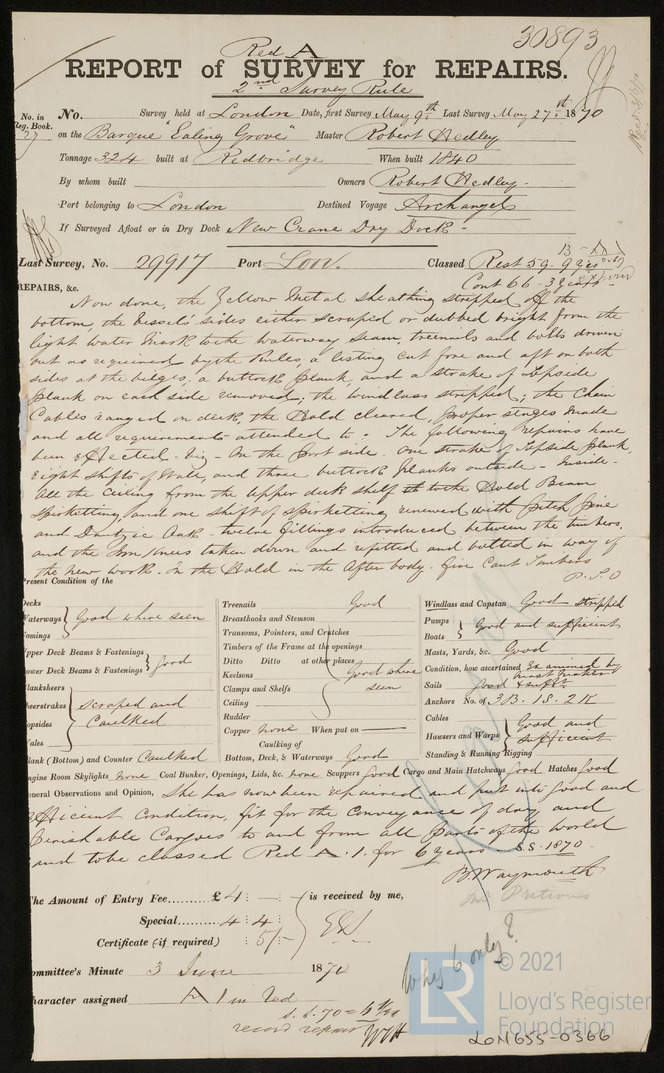 30893
Red A
REPORT of SURVEY for REPAIRS.
2nd Survey Rule
No. in Reg. Book. 27
No. Survey held at London Date, first Survey May 9th Last Survey May 27th 1870
on the Barque "Ealing Grove" Master Robert Hedley
Tonnage 324 built at Redbridge When built 1840
By whom built Owners Robert Hedley
Port belonging to London Destined Voyage Archangel
If Surveyed Afloat or in Dry Dock New Crane Dry Dock -
Last Survey, No. 29917 Port Lon Classed Rest 59 - 9
Cont 66 - 3 years
REPAIRS, &c.
Now done, the Yellow Metal sheathing stripped off the
bottom, the Vessel's sides either scraped or dubbed bright from the
light water mark to the waterway seam, treenails and bolts driven
out as required by the Rules, a listing cut fore and aft on both
sides at the bilges, a buttock plank, and a strake of Topside
plank on each side removed; the windlass stripped; the Chain
Cables ranged on deck, the Hold cleared, proper stages made
and all requirements attended to - The following repairs have
been effected - viz - On the Port side. One strake of Topside plank,
eight shifts of Wale, and three buttock planks outside - Inside -
All the Ceiling from the Upper deck shelf to the Hold Beam
Spirketting, and one shift of spirketting renewed with Pitch Pine
and Dantzic Oak - twelve fillings introduced between the timbers,
and the Iron Knees taken down and refitted and bolted in way of
the new work. In the Hold in the After body. Five Cant Timbers
P.T.O
Present Condition of the
Decks
Waterways
Comings
Good where seen
Upper Deck Beams & Fastenings
Lower Deck Beams & Fastenings
Good
Planksheers
Sheerstrakes
Topsides
Wales
Scraped and
Caulked
Plank (Bottom) and Counter Caulked
Treenails Good
Breasthooks and Stemson
Transoms, Pointers, and Crutches
Timbers of the Frame at the openings
Ditto Ditto at other places
Keelsons
Clamps and Shelfs
Ceiling
Rudder
Good where
seen
Copper none When put on
Caulking of
Bottom, Deck, & Waterways Good
Windlass and Capstan Good stripped
Pumps
Boats
Good and sufficient
Masts, Yards, &c. Good
Condition, how ascertained Examined by
Sails Good & sufft.
Anchors No. of 3 B. 1 S. 2 K
Cables
Hausers and Warps
Good and
sufficient
Standing & Running Rigging
Engine Room Skylights none Coal Bunker, Openings, Lids, &c. none Scuppers Good Cargo and Main Hatchways Good Hatches Good
General Observations and Opinion, She has now been repaired and put into good and
efficient condition, fit for the conveyance of dry and
Perishable Cargoes to and from all parts of the world
and to be classed Red A. 1. for 6 years S.S. 1870.
B. Waymouth
The Amount of Entry Fee......... £ 4 : - :
Special......... 4 : 4 :
Certificate (if required) : 5/-
is received by me,
Committee's Minute 3 June 1870
Character assigned A 1 in Red
S.S. 70 - 6 yrs
record repairs
Why 6 only?
© 2021
LR
Lloyd's Register
Foundation
LON655-0366